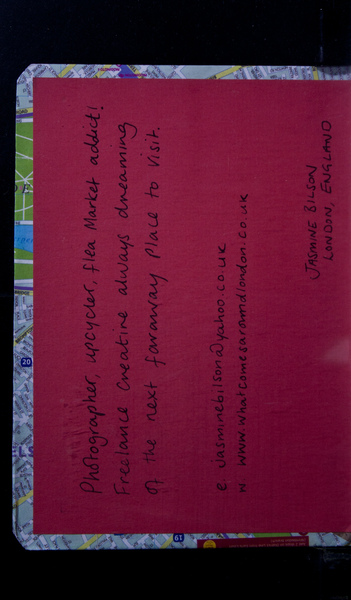 Photographer, upcycler, flea Market addict!
Freelance Creative always dreaming
of the next faraway place to visit.
e. jasminebilson@yahoo.co.uk
w www.whatcomesaroundlondon.co.uk
JASMINE BILSON
LONDON, ENGLAND
20
19